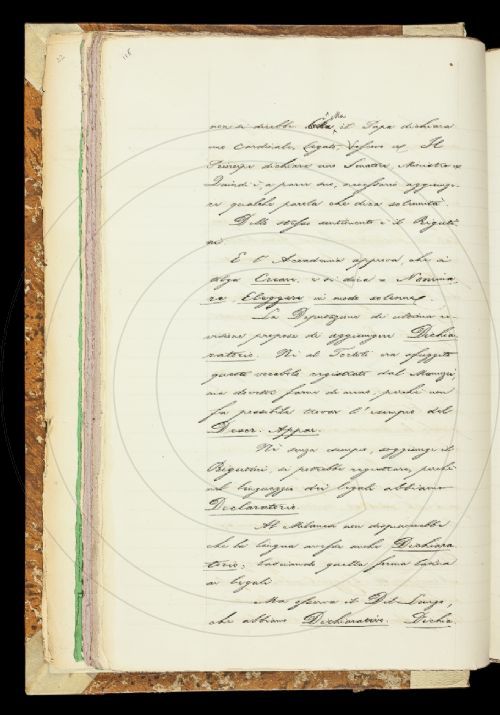 118
non si direbbe il Papa dichiara
uno Cardinale, Legato, Vescovo ec. Il
Principe dichiara uno Senatore, Ministro ec.
Quindi è, a parer mio, necessario aggiunge-
re qualche parola che dica solennità.
Dello stesso sentimento è il Biguti-
ni
E l'Accademia approva, che si
dica Creare, e si dica Nomina-
re Eleggere in modo solenne
La Deputazione di ultima re-
visione propose di aggiungere Dichia-
ratorio. Nè al Tortoli era sfuggito
questo vocabolo registrato dal Manuzzi,
ma dovette farne di meno, perchè non
fu possibile trovar l'esempio del
Descr. Appar.
Nè senza esempio, soggiunge il
Rigutini, si potrebbe registrare, perchè
nel linguaggio dei legali abbiamo
Declaratorio.
Al Milanesi non dispiacerebbe
che la lingua avesse anche Dichiara-
torio, lasciando quella forma latina
ai legali
Ma osserva il Del Lungo,
che abbiamo Dichiarativo. Dichia-